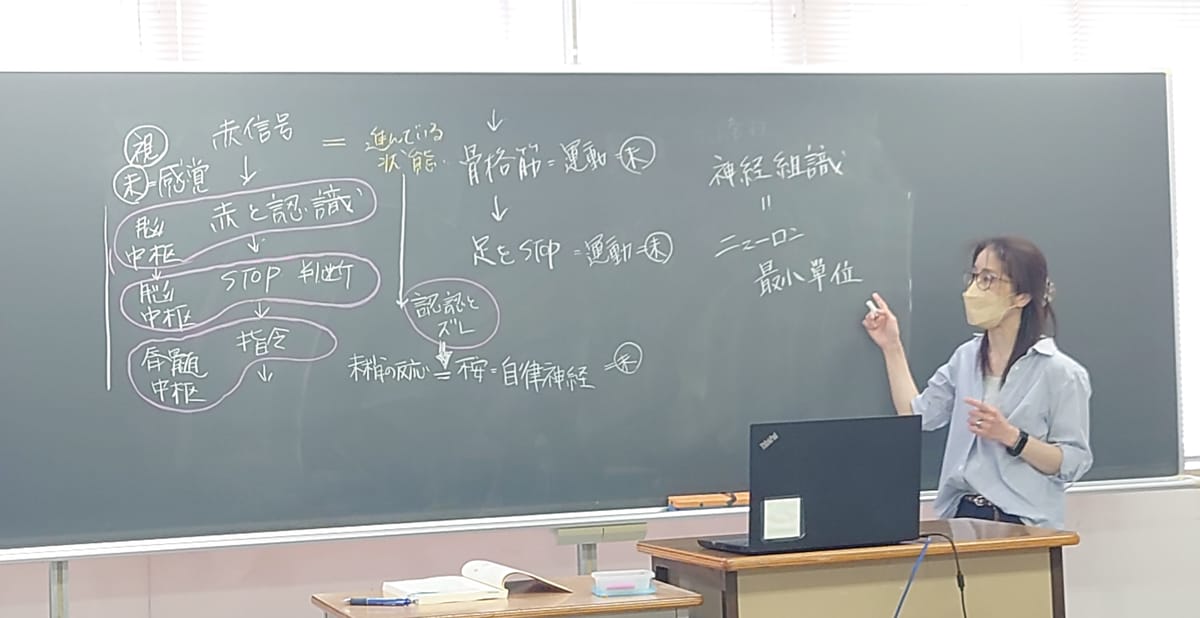 視 赤信号 = 進んでいる状態
末=感覚
↓
脳中枢 赤と認識
↓
脳中枢 STOP 判断
↓
脊髄中枢 指令
↓
認認とズレ
末梢の反応 = 不安=自律神経 =末
↓
骨格筋=運動=末
↓
足をSTOP =運動=末
神経組識
=
ニューロン
最小単位
ThinkPad